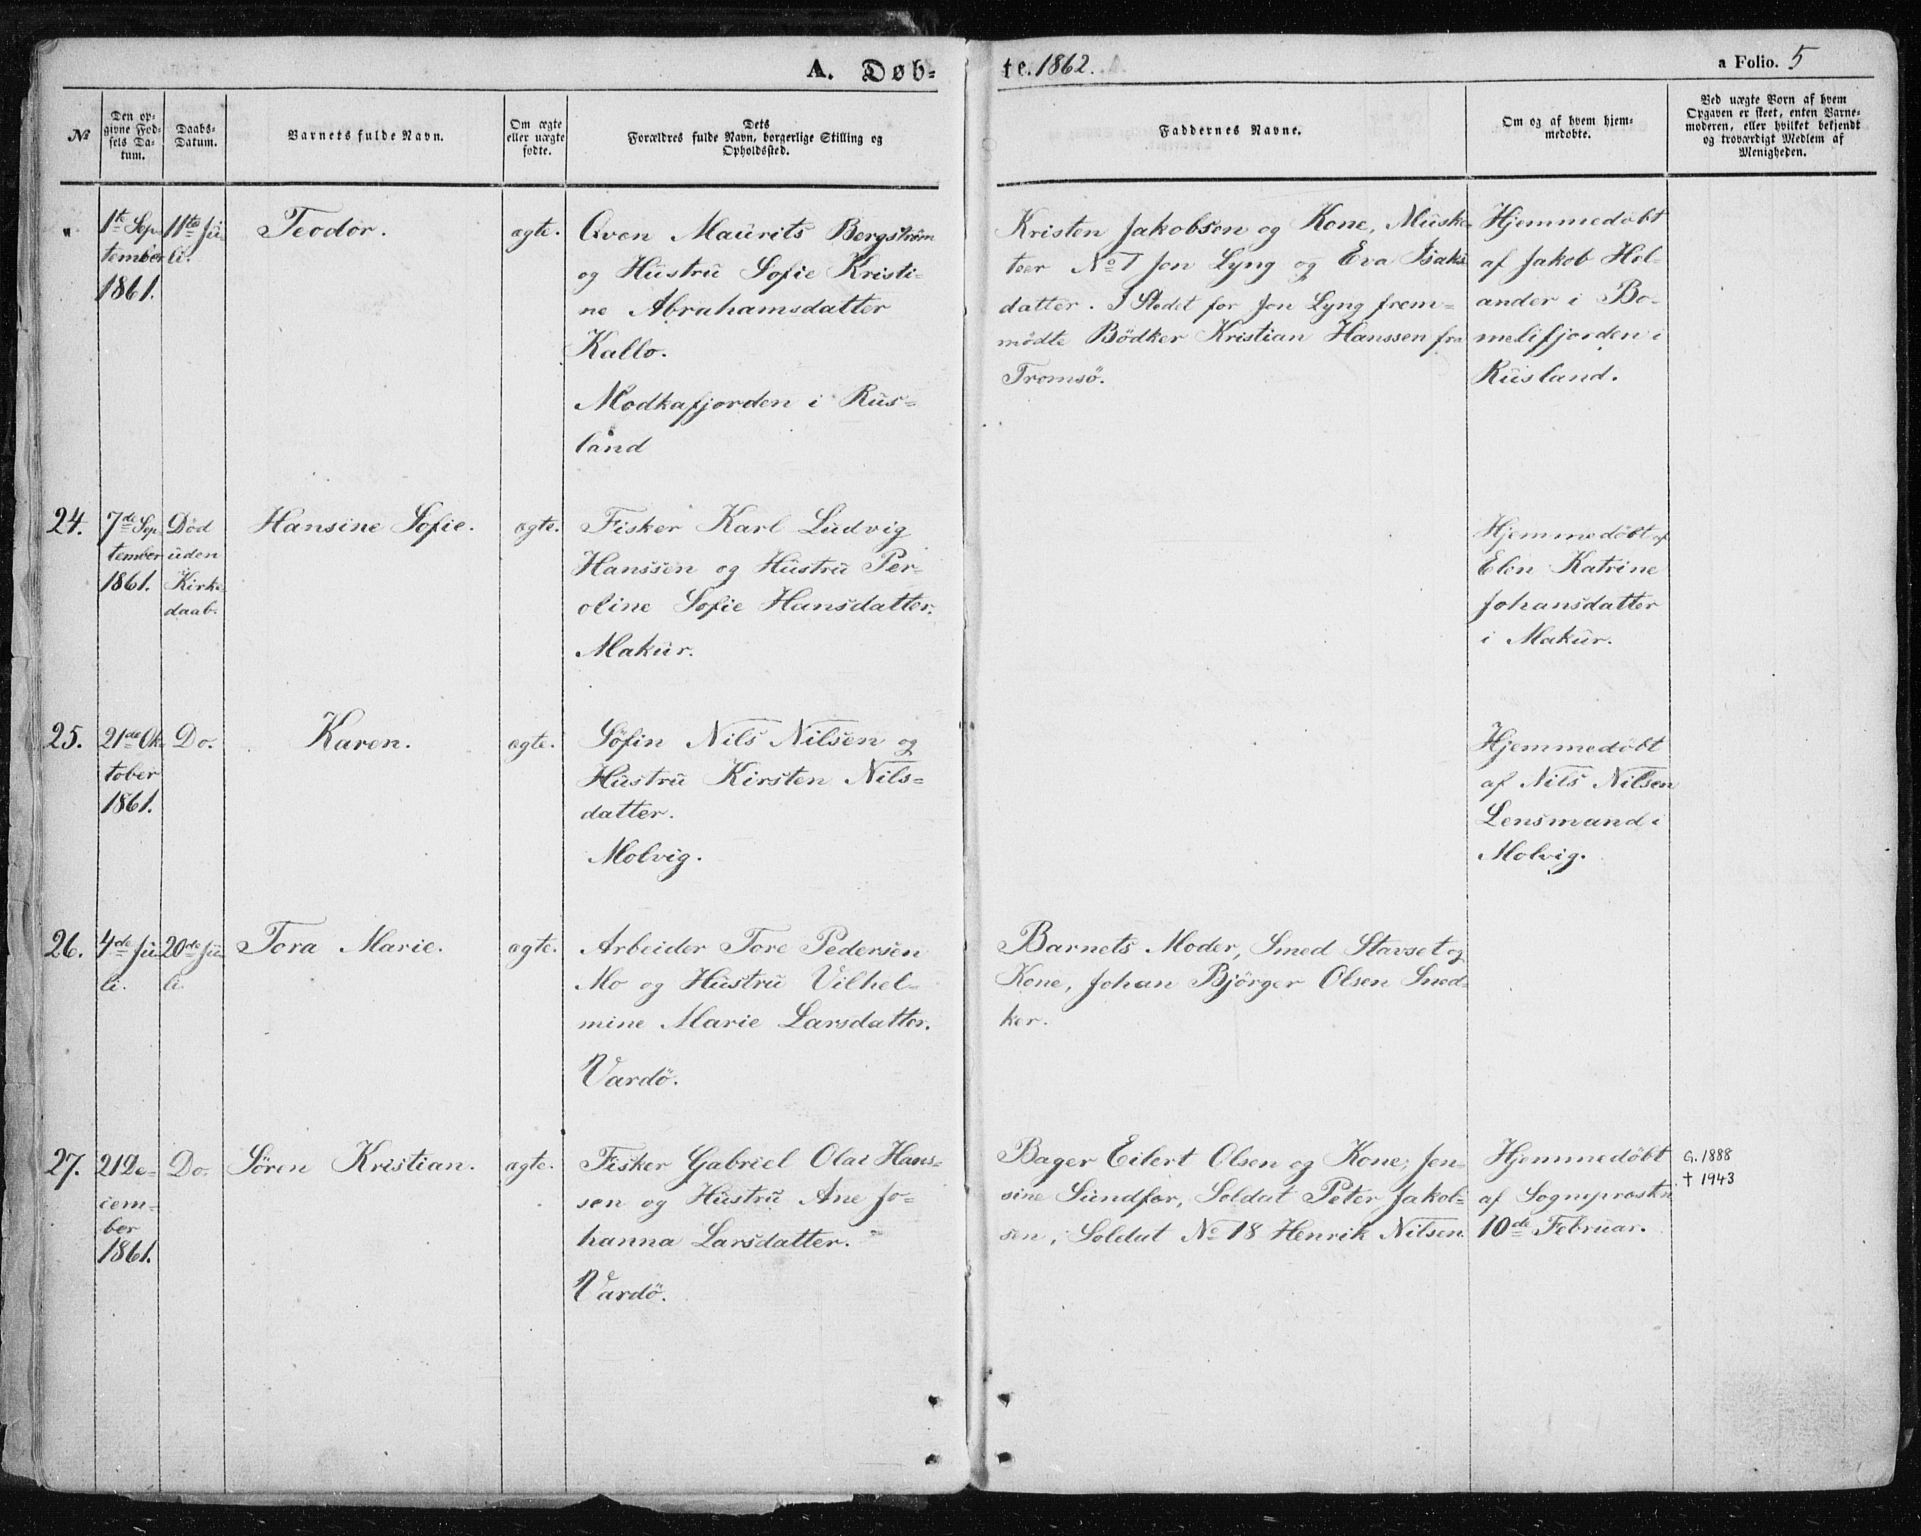 A. Døb-
te. 1862.
a Folio. 5
№
Den op-
givne Fød-
sels Da-
tum.
Daabs-
Datum.
Barnets fulde Navn.
Om ægte
eller uægte
fødte.
Dets
Forældres fulde Navn, borgerlige Stilling og
Opholdssted.
Faddernes Navne.
Om og af hvem hjem-
medøbte.
Ved uægte Børn af hvem
Opgaven er skeet, enten Barne-
moderen, eller hvilket bekjendt
og troværdigt Medlem af
Menigheden.
"
1te Sep-
tember
1861.
11te Ju-
li.
Teodor.
ægte.
Qven Maurits Bergström
og Hustru Sofie Kristi-
ne Abrahamsdatter
Kallo.
Modkafjorden i Rus-
land
Kristen Jakobsen og Kone, Muske-
teer No 1 Jon Lyng og Eva Isaks
datter. I Stedet for Jon Lyng frem-
mödte Bödker Kristian Hanssen fra
Tromsö.
Hjemmedöbt
af Jakob Hol-
ander i Bo-
melifjorden i
Rusland.
24.
7de Sep
tember
1861.
Död
uden
Kirke
daab.
Hansine Sofie.
ægte.
Fisker Karl Ludvig
Hanssen og Hustru Per-
oline Sofie Hansdatter.
Makur.
Hjemmedöbt af
Elen Katrine
Johansdatter
i Makur.
25.
21de Ok-
tober
1861.
Do.
Karen.
ægte.
Söfin Nils Nilsen og
Hustru Kirsten Nils-
datter.
Molvig.
Hjemmedöbt
af Nils Nilsen
Lensmand i
Molvig.
26.
4de Ju-
li.
20de Ju-
li.
Tora Marie.
ægte.
Arbeider Tore Pedersen
Mo og Hustru Vilhel-
mine Marie Larsdatter.
Vardö.
Barnets Moder, Smed Stavset og
Kone, Johan Björger Olsen Sned-
ker.
27.
21 De-
cem-
ber
1861.
Do.
Sören Kristian.
ægte.
Fisker Gabriel Olai Hans-
sen og Hustru Ane Jo-
hanna Larsdatter.
Vardö.
Bager Eilert Olsen og Kone, Jen-
sine Sundfær, Soldat Peter Jakob-
sen, Soldat No 18 Henrik Nilsen.
Hjemmedöbt
af Sogneprosten
10de Februar.
G. 1888
† 1943